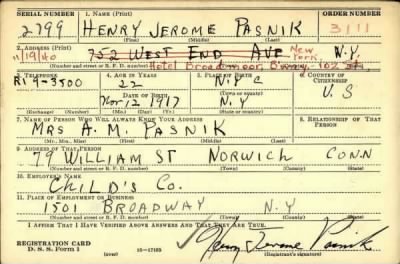 SERIAL NUMBER 1. NAME (Print) ORDER NUMBER
2799 HENRY JEROME PASNIK 3111
(First) (Middle) (Last)
2. ADDRESS (Print)
11/9/40 752 WEST END AVE New York, N.Y.
Hotel Broadmoor, B'way - 102 St,
(Number and street or R. F. D. number) (Town) (County) (State)
3. TELEPHONE 4. AGE IN YEARS 5. PLACE OF BIRTH 6. COUNTRY OF CITIZENSHIP
RI 9-3500 22 N Y C U S
DATE OF BIRTH (Town or county)
Nov 12 1917 N.Y
(Exchange) (Number) (Mo.) (Day) (Yr.) (State or country)
7. NAME OF PERSON WHO WILL ALWAYS KNOW YOUR ADDRESS 8. RELATIONSHIP OF THAT PERSON
MRS A. M. PASNIK
(Mr., Mrs., Miss) (First) (Middle) (Last)
9. ADDRESS OF THAT PERSON
79 WILLIAM ST NORWICH CONN
(Number and street or R. F. D. number) (Town) (County) (State)
10. EMPLOYER'S NAME
CHILD'S Co.
11. PLACE OF EMPLOYMENT OR BUSINESS
1501 BROADWAY N Y
(Number and street or R. F. D. number) (Town) (County) (State)
I AFFIRM THAT I HAVE VERIFIED ABOVE ANSWERS AND THAT THEY ARE TRUE.
REGISTRATION CARD
D. S. S. Form 1 (over) 16-17105 Henry Jerome Pasnik
(Registrant's signature)